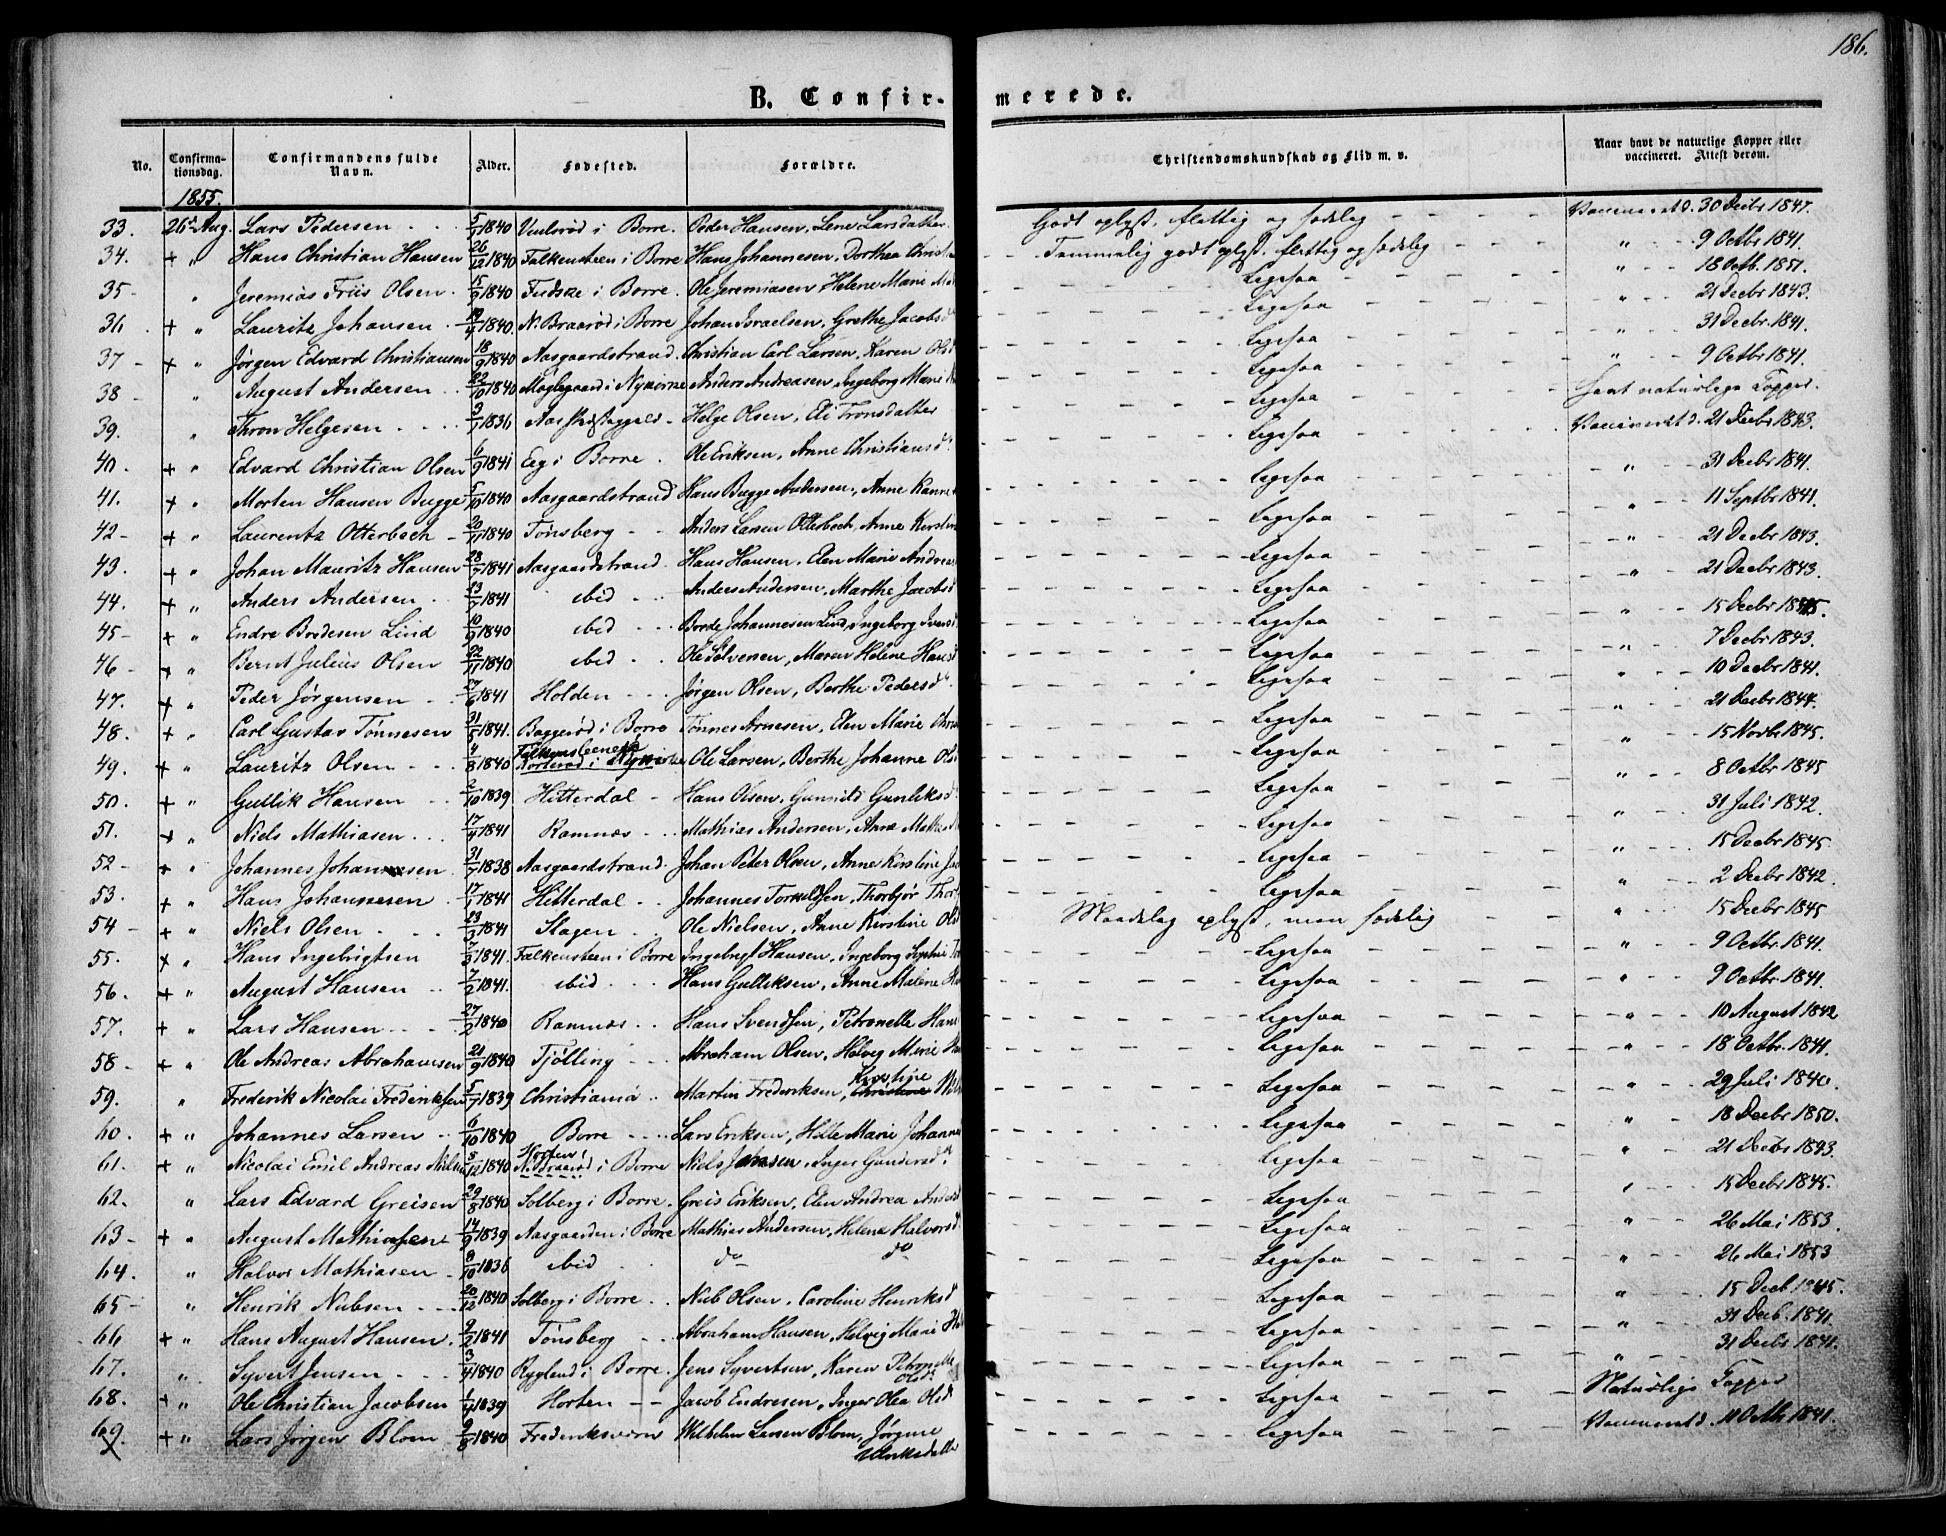 186.
B. Confir- merede.
No. Confirma-tionsdag. Confirmandens fulde Navn. Alder. Fødested. Forældre. Christendomskundskab og Flid m. v. Naar havt de naturlige Kopper eller vaccineret. Attest derom.
1855.
33. 26 Aug. Lars Pedersen 5/7 1840 i Borre. Peder Hansen, Lene Larsdatter Godt oplyst, flittig og sedelig 30 Decbr 1847.
34. + " Hans Christian Hansen 26/12 1840 Falkensteen i Borre Hans Johannesen, Dorthea " 9 Octbr 1841.
35 " Jeremias Friis Olsen 15/9 1840 i Borre. Ole Jeremiasen, Helene Marie Ligesaa " 18 Octb. 1851.
36. + " Lauritz Johansen 1840. N. Braarød i Borre Johan Israelsen, Grethe Jacobsd Ligesaa " 21 Decbr 1843.
37 + " Jørgen Edvard Christiansen 18/9 1840 Aasgaardstrand. Christian Carl Larsen, Karen Olsd Ligesaa " 31 Decbr. 1841.
38 " August Andersen 22/10 1840 i Nykirke Anders Andreasen, Ingeborg Marie Ligesaa " 9 Octbr 1841.
39. " Thron Helgesen 1836 Helge Olsen, Eli Tronsdatter Ligesaa havt naturlige Kopper.
40. + " Edvard Christian Olsen 1841 Eeg i Borre. Ole Eriksen, Anne Christiansd Ligesaa 21 Decbr 1843.
41. + " Morten Hansen Bugge 5/10 1840 Aasgaardstrand Hans Bugge Andersen, Anne Ligesaa " 31 Decbr 1841.
42 + " Laurentz Otterbech 20/11 1840 Tønsberg Anders Larsen Otterbech, Anne Kirstine Ligesaa " 11 Septbr 1841.
43. + " Johan Mauritz Hansen 1841 Aasgaardstrand. Hans Hansen, Elen Marie Ligesaa " 21 Decbr 1843.
44. + " Anders Andersen 1841 ibid Anders Andersen, Marthe Jacobsd Ligesaa " 21 Decbr 1843.
45 + " Endre Brødesen Lind 10/9 1840 ibid Johannesen Lind, Ingeborg Iversd Ligesaa " 15 Decbr
46 + " Bernt Julius Olsen 22/11 1840 ibid Maren Helene Hansd Ligesaa " 7 Decbr 1843.
47. + " Peder Jørgensen 1841 Holden Jørgen Olsen, Berthe Pedersd Ligesaa " 10 Decbr 1841.
48. + " Carl Gustav Tønnesen 31/5 1841. Baggerød i Borre Tønnes Arnesen, Elen Marie Ligesaa " 21 Decbr 1844.
49. + " Lauritz Olsen 4/8 1840 i Nykirke Ole Larsen, Berthe Johanne Ligesaa " 15 Novbr 1845.
50. + " Gullik Hansen 2/10 1839 Hitterdal Hans Olsen, Gunnild Ligesaa " 8 Octbr 1845
51. + " Niels Mathiasen 17/4 1841 Ramnæs Mathias Andersen, Anne Ligesaa " 31 Juli 1842.
52 + " Johannes Johannesen 31/7 1838 Aasgaardstrand. Johan Peter Olsen, Anne Kirstine Ligesaa " 15 Decbr 1845.
53. + " Hans Johannesen 17/1 1841 Hitterdal Johannes Torkildsen, Thorbjør Ligesaa " 2 Decbr 1842.
54 + " Niels Olsen 23/3 1841 Slagen Ole Nielsen, Anne Kirstine Olsd Maadelig oplyst, men sedelig " 15 Decbr 1845
55. + " Hans Ingebrigtsen 1841. Falkensteen i Borre Ingebrigt Hansen, Ingeborg Ligesaa " 9 Octbr. 1841.
56. + " August Hansen 7/2 1841. ibid Hans Gulliksen, Anne Malene Ligesaa " 9 Octbr. 1841.
57. + " Lars Hansen 27/2 1840 Ramnæs Hans Svendsen, Petronelle Ligesaa " 10 August 1842
58 + " Ole Andreas Abrahamsen 21/9 1840 Tjølling Abraham Olsen, Helvig Marie Ligesaa " 18 Octbr. 1841.
59. " Frederik Nicolai Frederiksen 5/7 1839 Christiania Martin Frederiksen, Kirstine Ligesaa " 29 Juli 1840.
60. + " Johannes Larsen 6/10 1840 Borre Lars Eriksen, Helle Marie Ligesaa " 18 Decbr 1850.
61. + " Nicolai Emil Andreas 1840 Horten N. Braarød i Borre Niels Jansen, Inger Gundersd Ligesaa " 21 Decbr 1843.
62. " Lars Edvard Greisen 29/8 1840 Solberg i Borre. Greis Eriksen, Elen Andrea Andersd Ligesaa 15 Decbr 1845.
63 + " August Mathiasen 14/9 1839 Aasgaarden i Borre Mathias Andersen, Helene Halvorsd Ligesaa " 26 Mai 1853.
64. " Halvor Mathiasen 8/10 1836 ibid do do Ligesaa " 26 Mai 1853
65 " Henrik Nielsen 20/12 1840 Solberg i Borre Niels Olsen, Caroline Henriksd Ligesaa " 15 Decb 1845
66 + " Hans August Hansen 9/2 1841 Tønsberg Abraham Hansen, Helvig Marie Ligesaa " 31 Decb. 1841.
67. " Syvert Jensen 3/4 1840 i Borre Jens Syvertsen, Karen Petronelle Olsd Ligesaa " 31 Decbr 1841.
68. + " Ole Christian Jacobsen 1839 Horten Jacob Endresen, Inger Olea Olsd Ligesaa Naturlige Kopper
69. + " Lars Jørgen Blom 9/8 1840 Frederiksværn Wilhelm Larsen Blom, Jørgine Ligesaa 11 Octbr 1841.